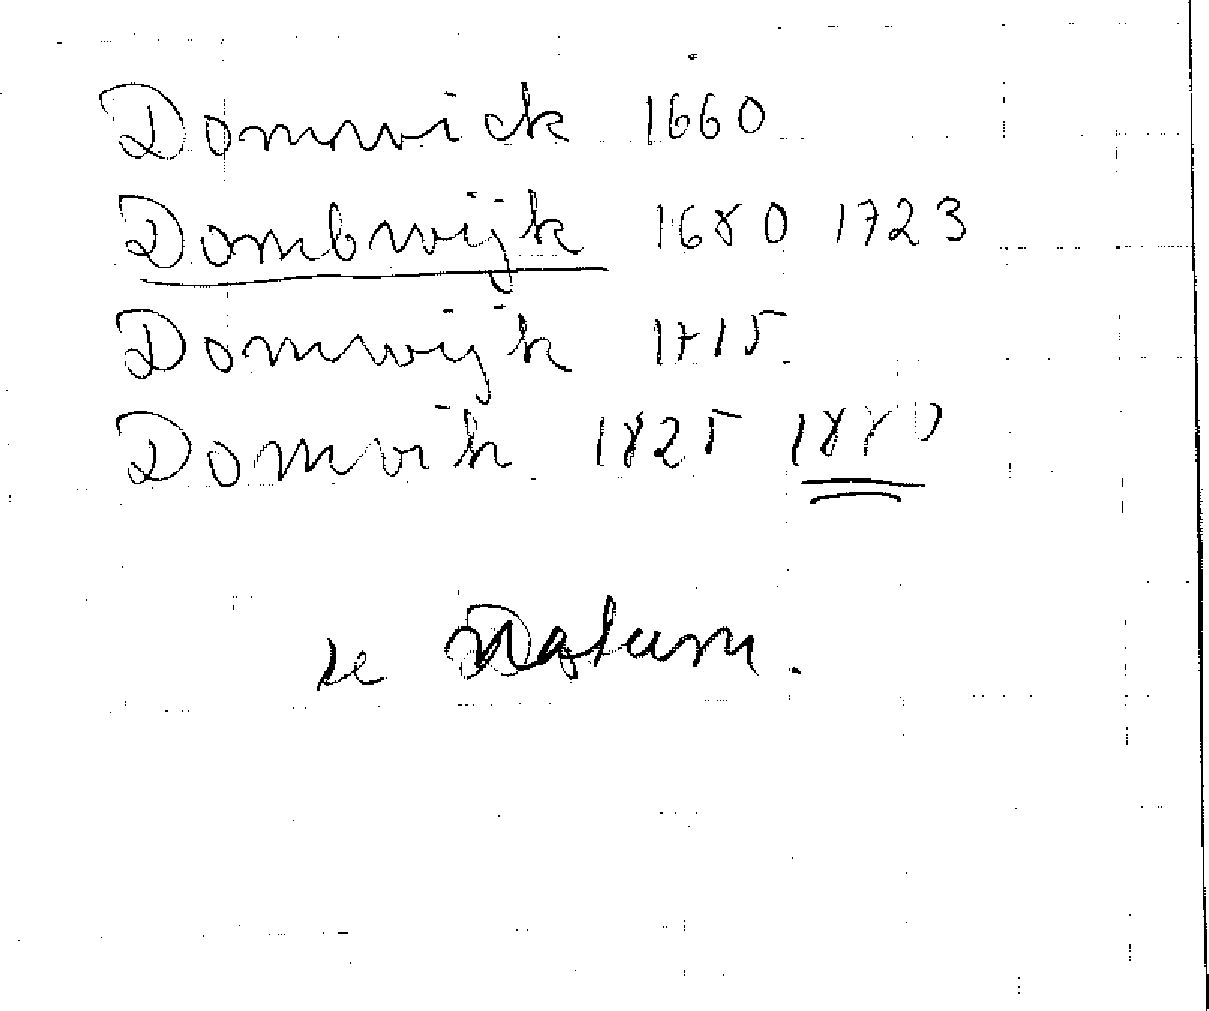 Domwick 1660
Dombwijk 1680 1723
Domwijk 1715
Domvik 1825 1880